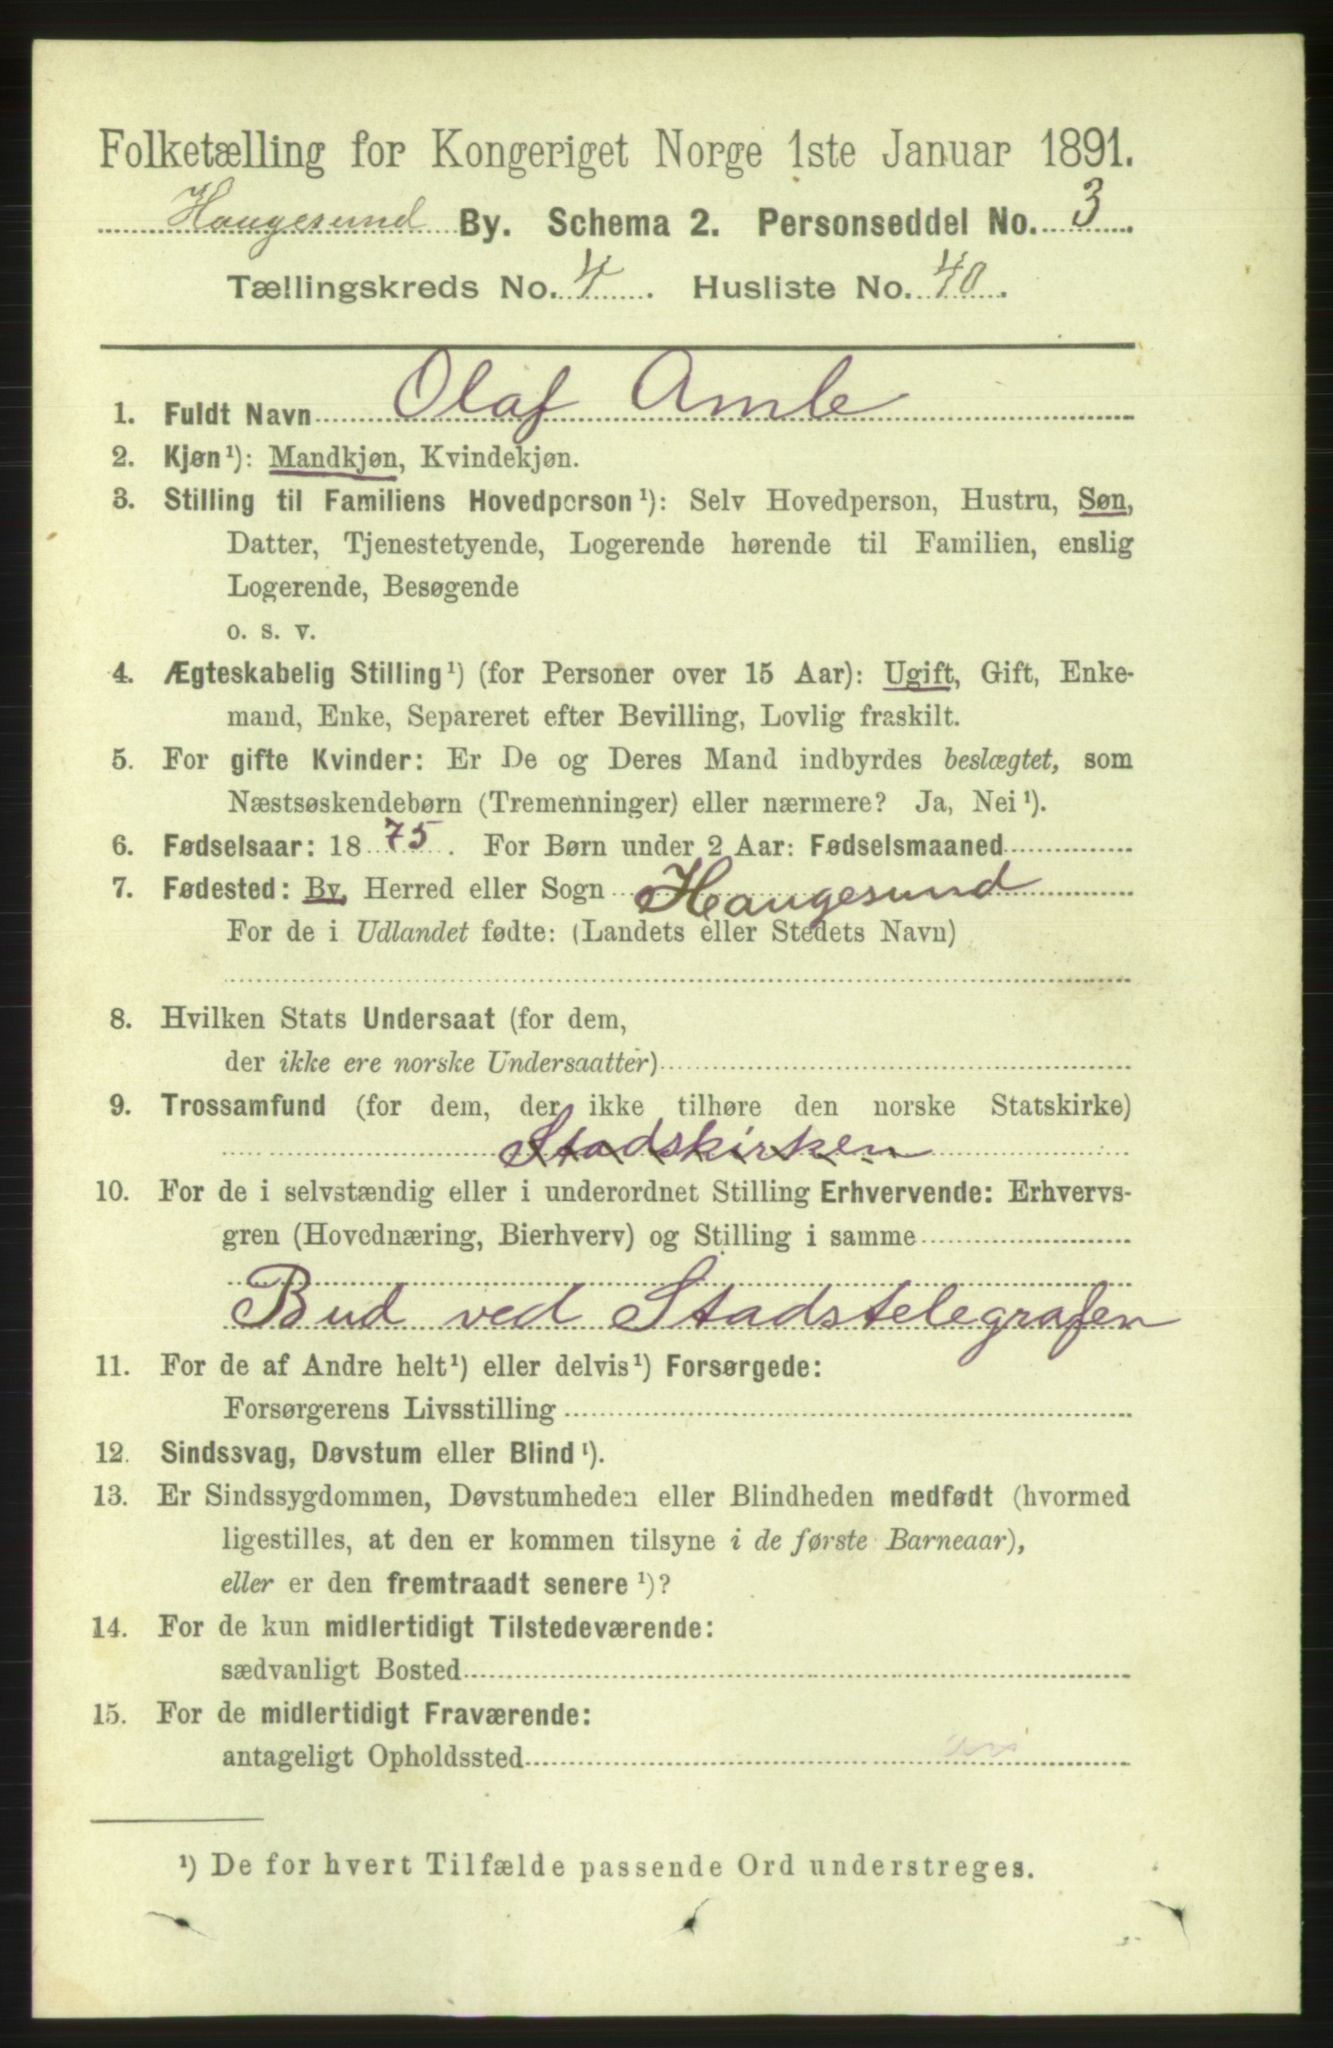 Folketælling for Kongeriget Norge 1ste Januar 1891.
Haugesund By. Schema 2. Personseddel No. 3.
Tællingskreds No. 4. Husliste No. 40.
1. Fuldt Navn Olaf Amle
2. Kjøn¹): Mandkjøn, Kvindekjøn.
3. Stilling til Familiens Hovedperson¹): Selv Hovedperson, Hustru, Søn,
Datter, Tjenestetyende, Logerende hørende til Familien, enslig
Logerende, Besøgende
o. s. v.
4. Ægteskabelig Stilling¹) (for Personer over 15 Aar): Ugift, Gift, Enke-
mand, Enke, Separeret efter Bevilling, Lovlig fraskilt.
5. For gifte Kvinder: Er De og Deres Mand indbyrdes beslægtet, som
Næstsøskendebørn (Tremenninger) eller nærmere? Ja, Nei¹).
6. Fødselsaar: 1875. For Børn under 2 Aar: Fødselsmaaned
7. Fødested: By, Herred eller Sogn Haugesund
For de i Udlandet fødte: (Landets eller Stedets Navn)
8. Hvilken Stats Undersaat (for dem,
der ikke ere norske Undersaatter)
9. Trossamfund (for dem, der ikke tilhøre den norske Statskirke)
Stadskirken
10. For de i selvstændig eller i underordnet Stilling Erhvervende: Erhvervs-
gren (Hovednæring, Bierhverv) og Stilling i samme
Bud ved Stadstelegrafen
11. For de af Andre helt¹) eller delvis¹) Forsørgede:
Forsørgerens Livsstilling
12. Sindssvag, Døvstum eller Blind¹).
13. Er Sindssygdommen, Døvstumheden eller Blindheden medfødt (hvormed
ligestilles, at den er kommen tilsyne i de første Barneaar),
eller er den fremtraadt senere¹)?
14. For de kun midlertidigt Tilstedeværende:
sædvanligt Bosted
15. For de midlertidigt Fraværende:
antageligt Opholdssted
¹) De for hvert Tilfælde passende Ord understreges.